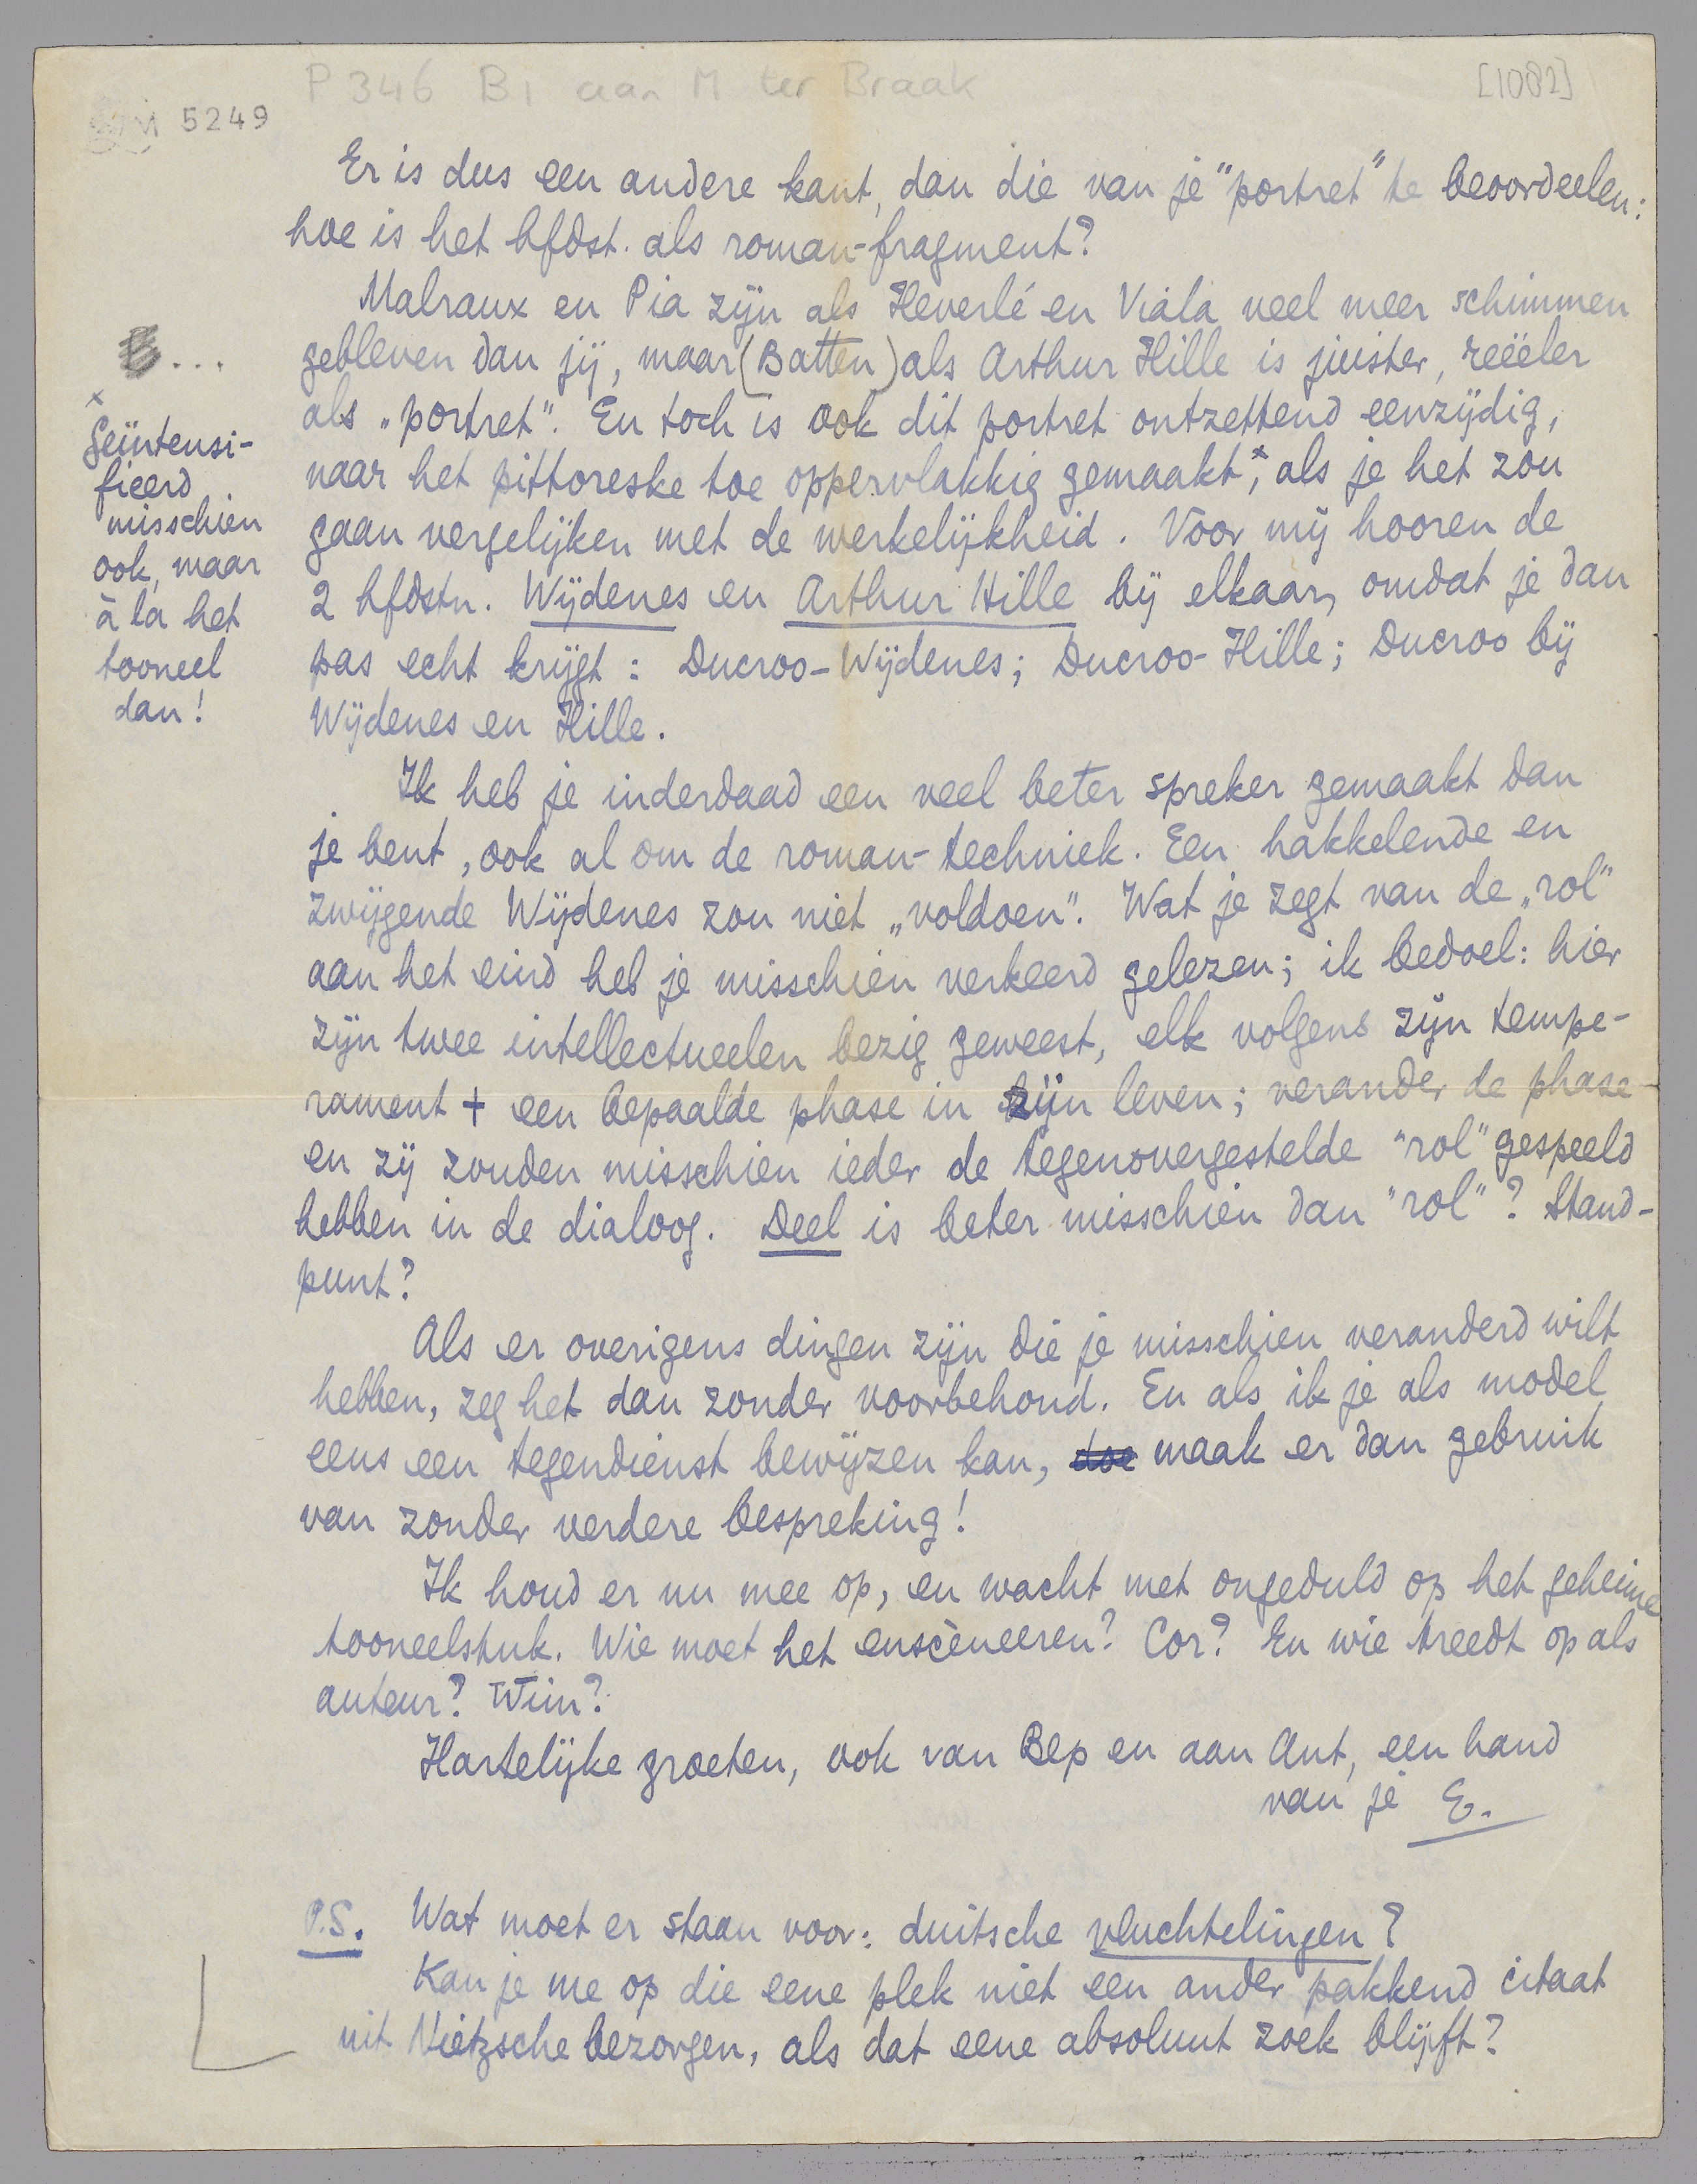 P 346 B1 aan M ter Braak
[1082]
5249
Er is dus een andere kant, dan die van je "portret" te beoordeelen:
hoe is het hfdst. als roman-fragment?
Malraux en Pia zijn als Heverlé en Viala veel meer schimmen
gebleven dan jij, maar (Batten) als Arthur Hille is juister, reëeler
als „portret". En toch is ook dit portret ontzettend eenzijdig,
naar het pittoreske toe oppervlakkig gemaakt,x als je het zou
gaan vergelijken met de werkelijkheid. Voor mij hooren de
2 hfdstn. Wijdenes en Arthur Hille bij elkaar, omdat je dan
pas echt krijgt: Ducroo-Wijdenes; Ducroo-Hille; Ducroo bij
Wijdenes en Hille.
B...
x
Geïntensi-
fieerd
misschien
ook, maar
à la het
tooneel
dan!
Ik heb je inderdaad een veel beter spreker gemaakt dan
je bent, ook al om de roman-techniek. Een hakkelende en
zwijgende Wijdenes zou niet „voldoen". Wat je zegt van de „rol"
aan het eind heb je misschien verkeerd gelezen; ik bedoel: hier
zijn twee intellectueelen bezig geweest, elk volgens zijn tempe-
rament + een bepaalde phase in zijn leven; verander de phase
en zij zouden misschien ieder de tegenovergestelde "rol" gespeeld
hebben in de dialoog. Deel is beter misschien dan "rol"? Stand-
punt?
Als er overigens dingen zijn die je misschien veranderd wilt
hebben, zeg het dan zonder voorbehoud. En als ik je als model
eens een tegendienst bewijzen kan, doe maak er dan gebruik
van zonder verdere bespreking!
Ik houd er nu mee op, en wacht met ongeduld op het geheime
tooneelstuk. Wie moet het enscèneeren? Cor? En wie treedt op als
auteur? Wim?
Hartelijke groeten, ook van Bep en aan Ant, een hand
van je E.
P.S. Wat moet er staan voor: duitsche vluchtelingen?
Kan je me op die eene plek niet een ander pakkend citaat
uit Nietzsche bezorgen, als dat eene absoluut zoek blijft?